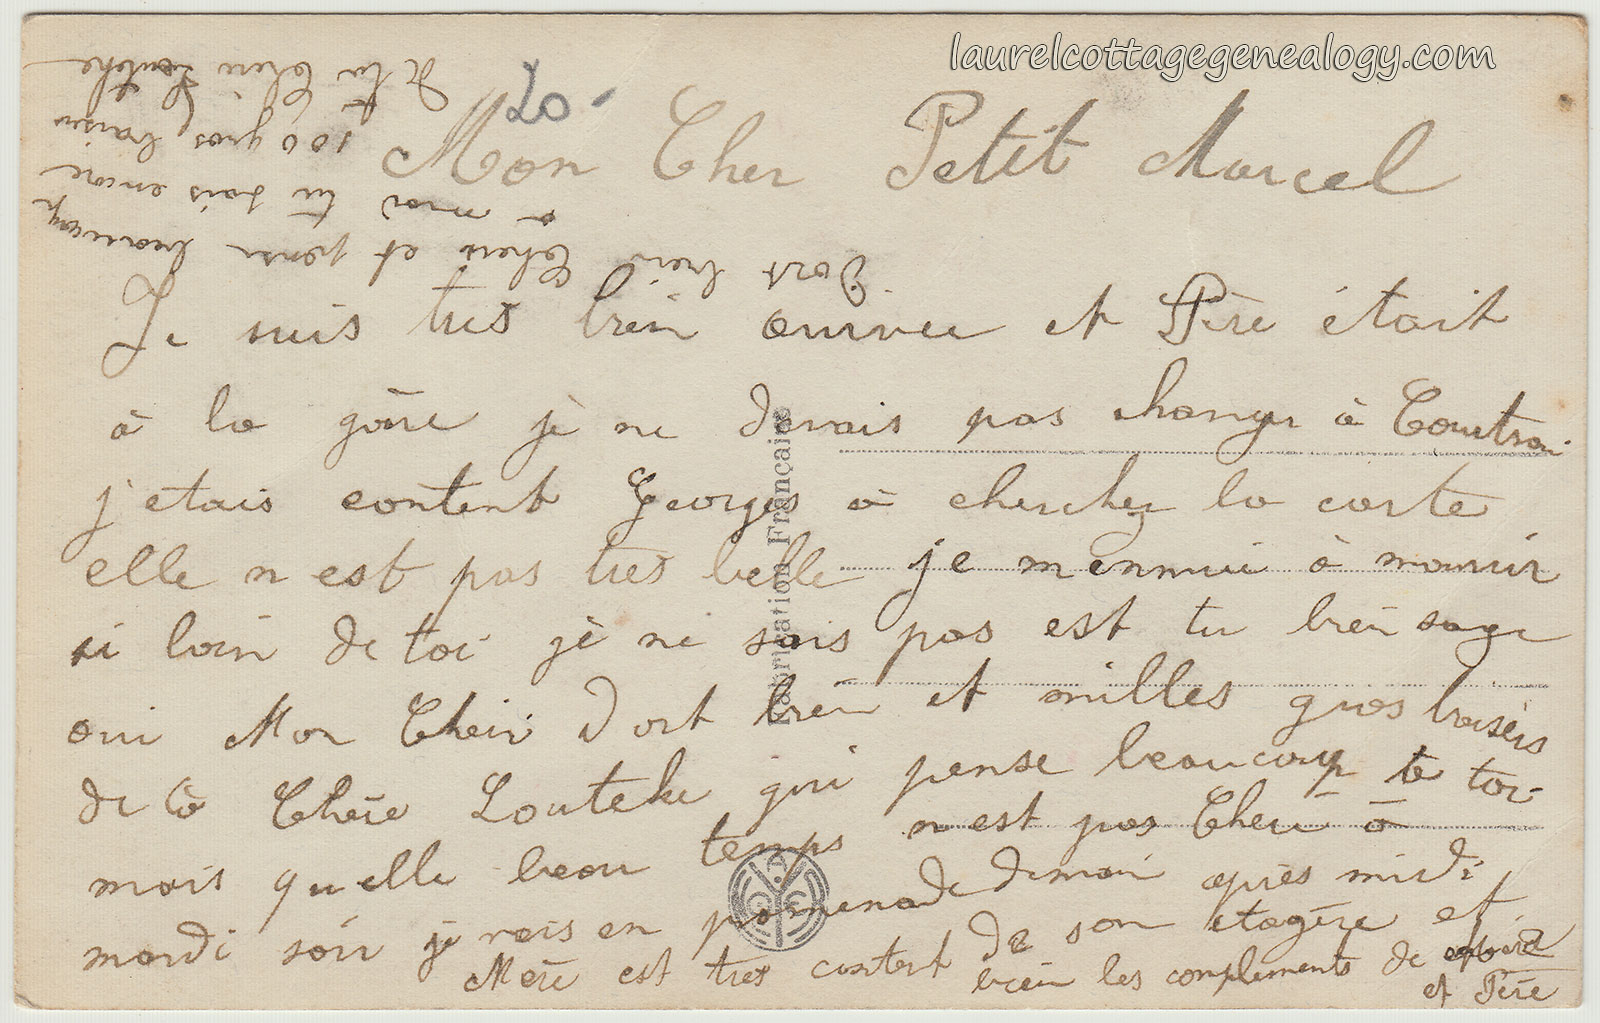 laurelcottagegenealogy.com
20
Mon Cher Petit Marcel
Je suis très bien arrivée et Père était
à la gâre jè ne devais pas changer à Courtrai
j'etais content Georges à cherchez la carte
elle n'est pas très belle je m'ennuie à mourir
si loin de toi jè ne sais pas est tu bien sage
oui Mon Cherie dort bien et milles gros baisers
de ta Chère Louteke qui pense beaucoup à toi
n'est pas Cherie à
mois quelle beau temps
mardi soir je vais en promenade demain après midi
Mère est très contert de son etagère et
bien les complements de
et Père
Dort bien Cherie et pense beaucoup
a moi tu sais encore
100 gros baisers
de ta Cherie Louteke
Fabrication Française